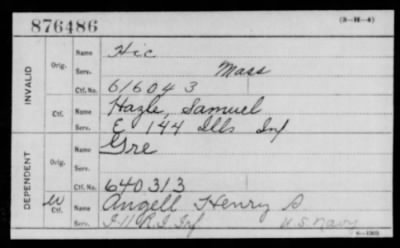 876486
(3-H-4)
INVALID
Orig.
Name Hic
Serv. Mass
Ctf. No. 616043
Ctf.
Name Hazle, Samuel
Serv. E 144 Ills Inf
DEPENDENT
Orig.
Name Gre
Serv.
Ctf. No. 640313
W
Ctf.
Name Angell Henry S
Serv. R.I. Inf U.S. Navy